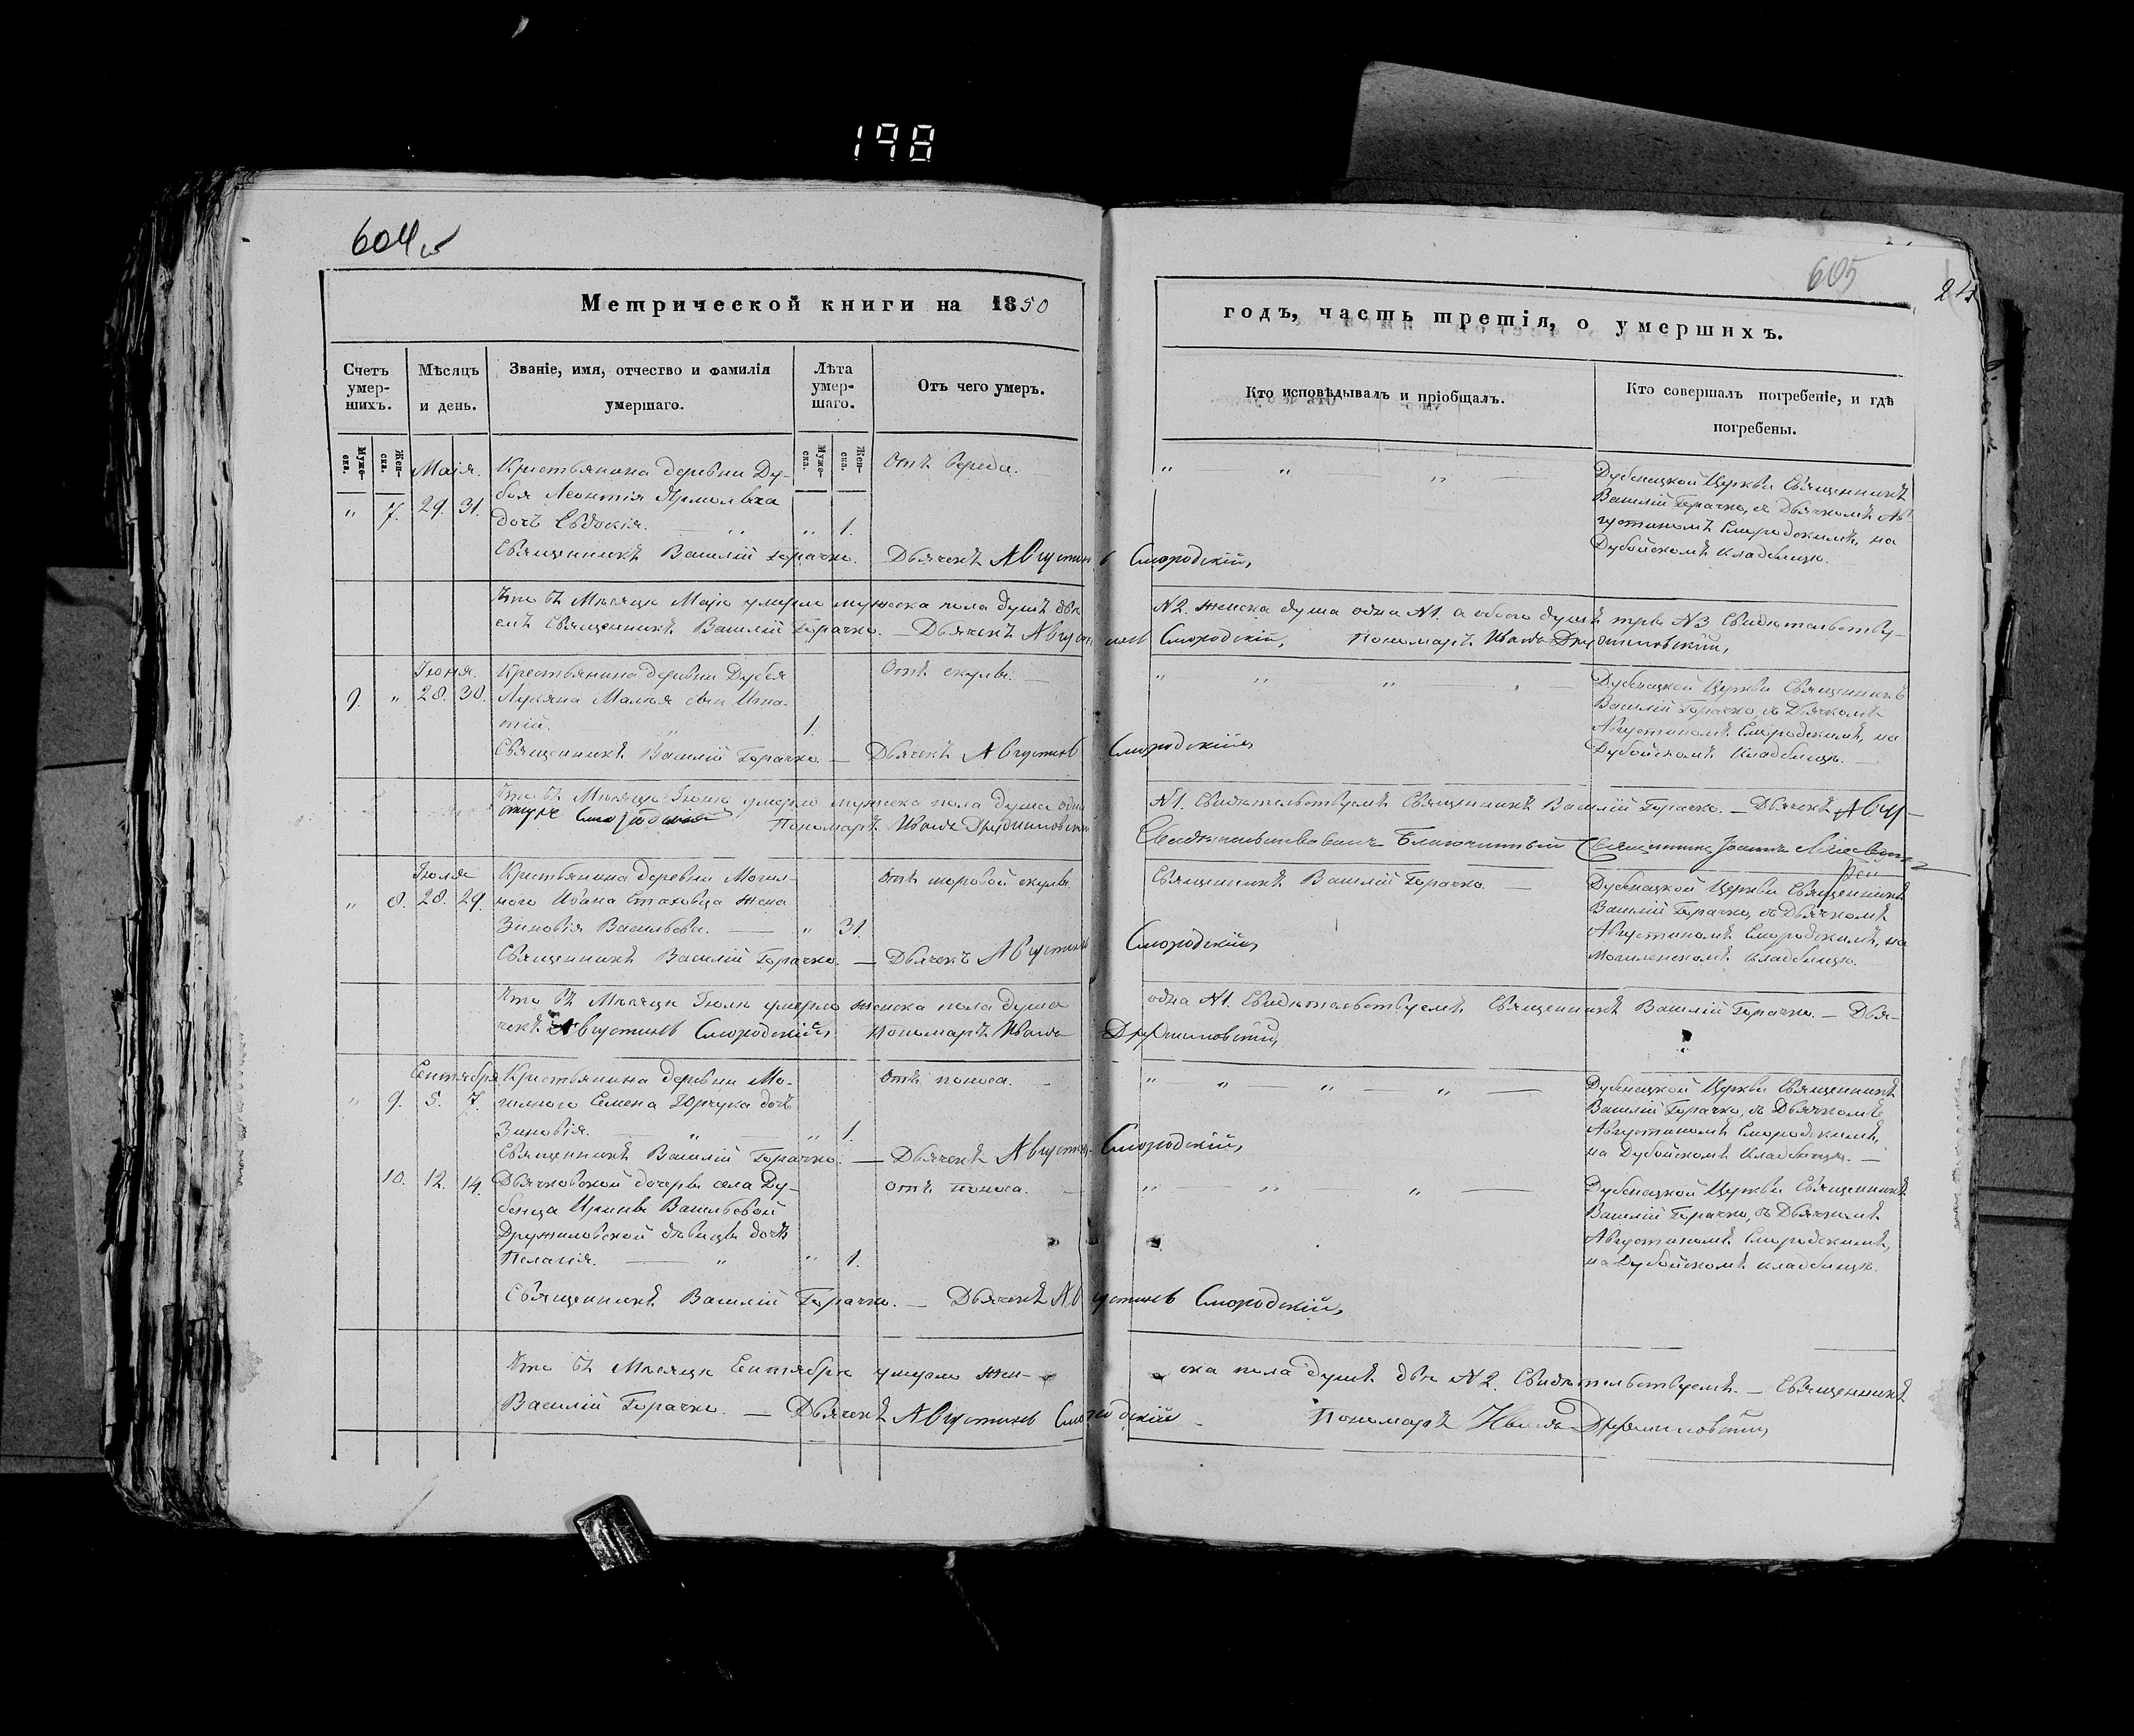 198
604
Метрической книги на 1850
Счетъ умер-шихъ.
Мѣсяцъ и день.
Званіе, имя, отчество и фамилія умершаго.
Лѣта умер-шаго.
Отъ чего умеръ.
Муже-ска.
Жен-ска.
Муже-ска.
Жен-ска.
Маія.
" 7. 29. 31.
Крестьянина деревни Ду-
боя Леонтія
дочь Евдокія. " " 1.
Священникъ Василій Горачко. Дьячекъ Августинъ Смородскій,
Что въ Мѣсяцѣ Маіѣ умерло мужеска пола душъ двѣ
емъ Священникъ Василій Горачко. — Дьячекъ Августинъ Смородскій, Пономарь Иванъ Дружиловскій,
Іюня.
9. " 28. 30.
Крестьянина деревни Дубоя
сынъ Игна-
тій. 1.
Отъ
Священникъ Василій Горачко. — Дьячекъ Августинъ Смородскій,
Что въ Мѣсяцѣ Іюнѣ умерло мужеска пола душа одна
Смородскій Пономарь Иванъ Дружиловскій
Іюля
" 8. 28. 29.
Крестьянина деревни Могил-
ного Ивана Стаховца жена
Зиновія Васильева. — " 31.
Священникъ Василій Горачко. — Дьячекъ Августинъ Смородскій,
Что въ Мѣсяцѣ Іюлѣ умерло женска пола душа
чекъ Августинъ Смородскій, Пономарь Иванъ Дружиловскій,
Сентября
" 9. 5. 7.
Крестьянина деревни Мо-
гилного Семена Юрчука дочь
Зиновія. " " 1.
Отъ поноса.
Священникъ Василій Горачко. — Дьячекъ Августинъ Смородскій,
10. 12. 14.
Дьячковской дочери села Ду-
бенца Ирины Васильевой
Дружиловской дѣвицы дочь
Пелагія. — " " 1.
Отъ поноса.
Священникъ Василій Горачко. — Дьячекъ Августинъ Смородскій,
Что въ Мѣсяцѣ Сентябрѣ умерло жен-
Василій Горачко. — Дьячекъ Августинъ Смородскій
605
годъ, часть третія, о умершихъ.
Кто исповѣдывалъ и пріобщалъ.
Кто совершалъ погребеніе, и гдѣ погребены.
" " " —
Дубенецкой Церкви Священникъ
Василій Горачко, съ Дьячкомъ Ав-
густиномъ Смородскимъ, на
Дубойскомъ кладбищѣ.
N2. женска душа одна N1. а обоего душъ три N3 Свидѣтельству-
" " " " —
Дубенецкой Церкви Священникъ
Василій Горачко, съ Дьячкомъ
Августиномъ Смородскимъ, на
Дубойскомъ кладбищѣ. —
N1. Свидѣтельствуемъ Священникъ Василій Горачко. — Дьячекъ Авгу-
Благочинный Священникъ
Священникъ Василій Горачко. —
Дубенецкой Церкви Священникъ
Василій Горачко, съ Дьячкомъ
Августиномъ Смородскимъ, на
Могиленскомъ кладбищѣ.
одна N1. Свидѣтельствуемъ Священникъ Василій Горачко. — Дья-
" " " " —
Дубенецкой Церкви Священникъ
Василій Горачко, съ Дьячкомъ
Августиномъ Смородскимъ,
на Дубойскомъ кладбищѣ. —
" " " —
Дубенецкой Церкви Священникъ
Василій Горачко, съ Дьячкомъ
Августиномъ Смородскимъ,
на Дубойскомъ кладбищѣ.
ска пола душъ двѣ N2. Свидѣтельствуемъ. — Священникъ
Пономарь Иванъ Дружиловскій,